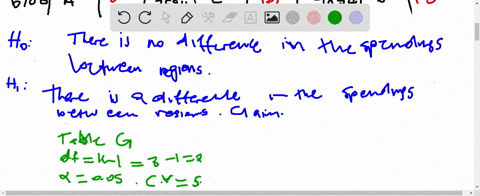 H0: There is no difference in the spendings
between regions.
H1:
There is a difference in the spendings
between regions. Claim.
Table G
df = k-1 = 3 -1 = 2
α = 0.05 . C.V = 5.